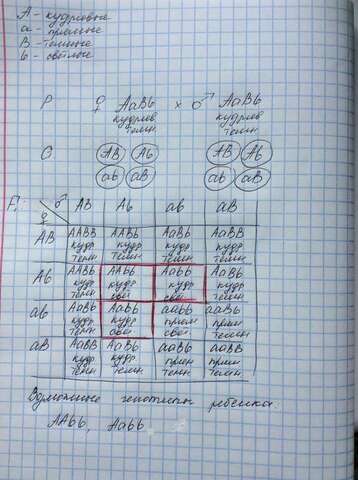 А - кудрявые
а - прямые
В - тёмные
b - светлые
P ♀ AaBb × ♂ AaBb
кудряв кудряв
темн темн
G AB Ab AB Ab
ab aB ab aB
F₁: ♂ AB Ab ab aB
♀
AB AABB AABb AaBb AaBB
кудр кудр кудр кудр
темн темн темн темн
Ab AABb AAbb Aabb AaBb
кудр кудр кудр кудр
темн свет свет темн
ab AaBb Aabb aabb aaBb
кудр кудр прям прям
темн свет свет темн
aB AaBB AaBb aaBb aaBB
кудр кудр прям прям
темн темн темн темн
Возможные генотипы ребёнка:
AAbb, Aabb